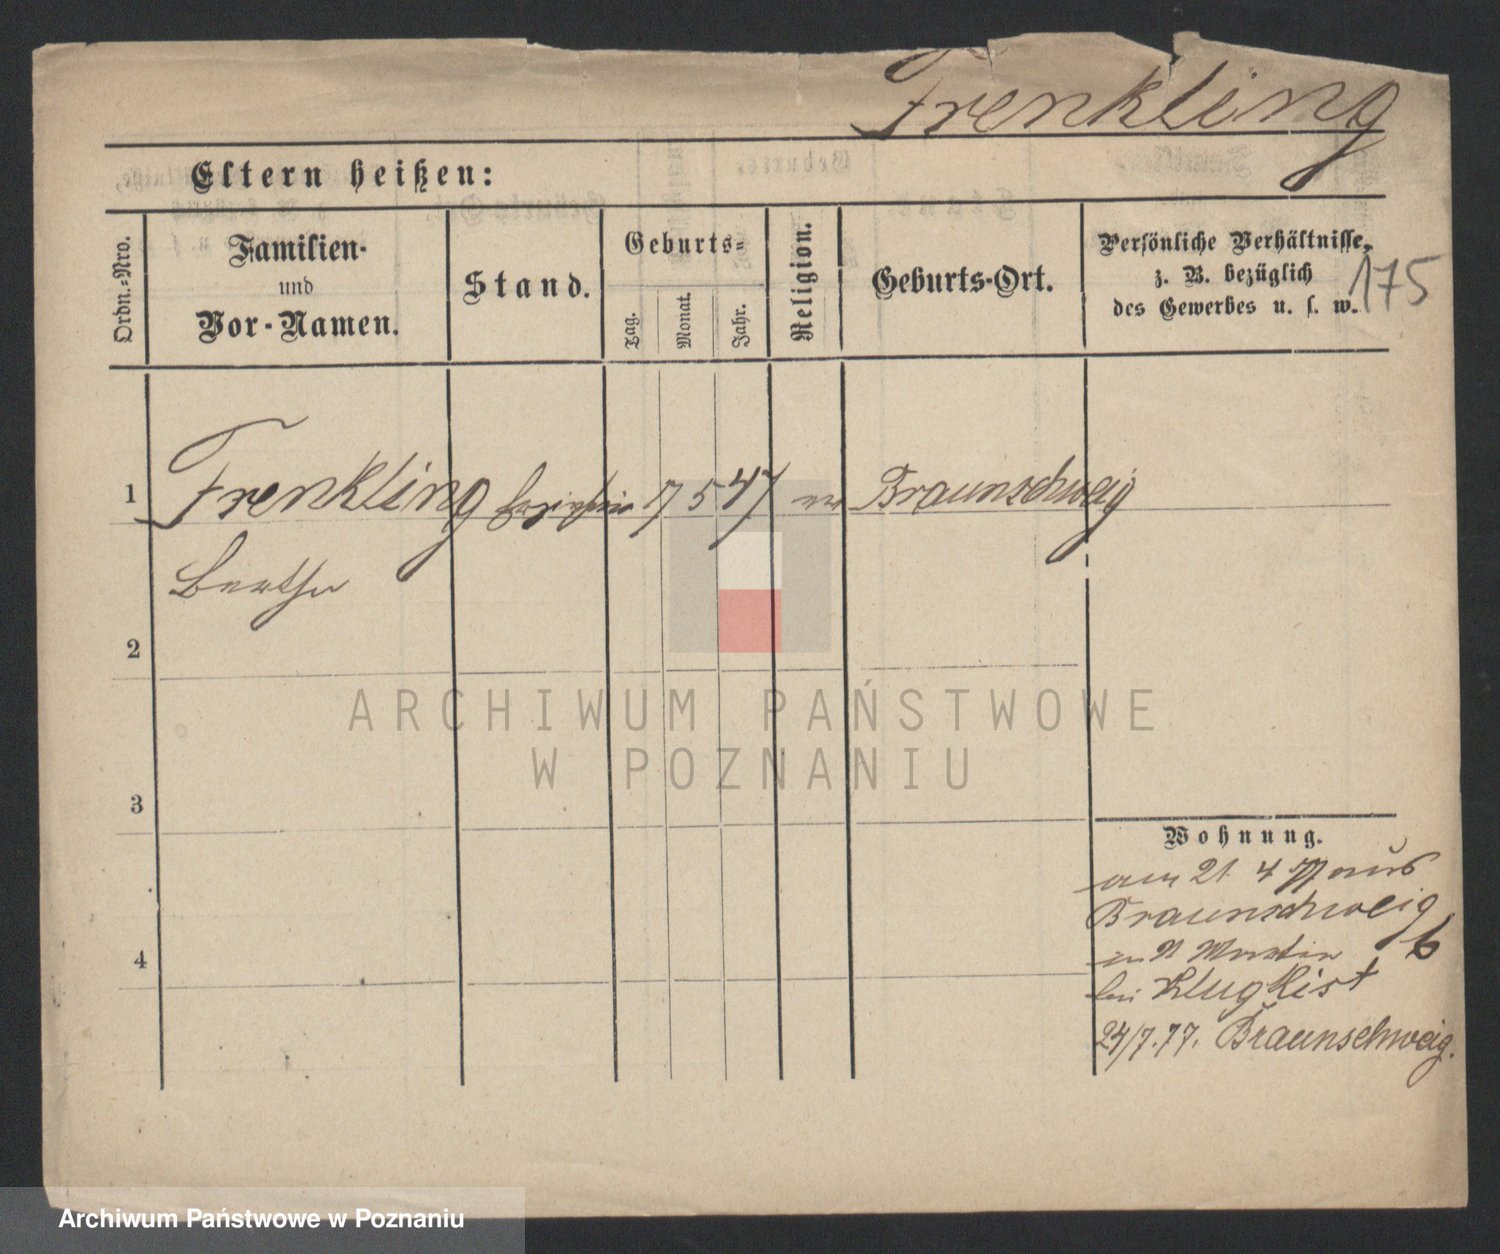 Frenkling
Eltern heißen:
Ordn.-Nro.
Familien-
und
Vor-Namen.
Stand.
Geburts-
Tag.
Monat.
Jahr.
Religion.
Geburts-Ort.
Persönliche Verhältnisse,
z. B. bezüglich
des Gewerbes u. s. w.
175
1 Frenkling 7 5 47 Braunschweig
Bertha
2
3
4
Wohnung.
am 21 4 77 aus
Braunschweig
in St Martin 6
bei Klugkist
24/7.77. Braunschweig.
ARCHIWUM PAŃSTWOWE
W POZNANIU
Archiwum Państwowe w Poznaniu